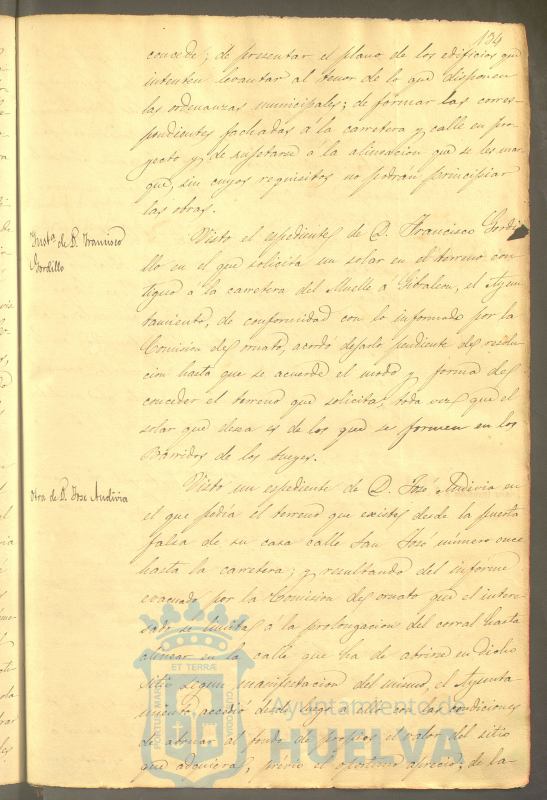 134
concede; de presentar el plano de los edificios que
intenten levantar al tenor de lo que disponen
las ordenanzas municipales; de formar las corres-
pondientes fachadas á la carretera y calle en pro-
yecto y de sujetarse á la alineacion que se les mar-
que, sin cuyos requisitos no podrán principiar
las obras.
Inst.ª de D. Francisco
Gordillo
Visto el espediente de D. Francisco Gordi-
llo en el que solicita un solar en el terreno con-
tiguo á la carretera del Muelle á Gibraleon, el Ayun-
tamiento, de conformidad con lo informado por la
Comision de ornato, acordó dejarlo pendiente de resolu-
cion hasta que se acuerde el modo y forma de
conceder el terreno que solicita, toda vez que el
solar que desea es de los que se formen en los
de los
otra de D. Jose Andivia
Visto un espediente de D. José Andivia en
el que pedia el terreno que existe desde la puerta
falsa de su casa calle San José número once
hasta la carretera; y resultando del informe
evacuado por la Comision de ornato que el intere-
sado se limita á la prolongacion del corral hasta
alinear en la calle que ha de abrirse en dicho
sitio segun manifestacion del mismo, el Ayunta-
miento accedió desde luego a ello con las condiciones
de abonar al fondo de propios el valor del sitio
que adquiera, previo el oportuno aprecio; de la-
ET TERRÆ
PORTUS MARIS
CUSTODIA
Ayuntamiento de
HUELVA